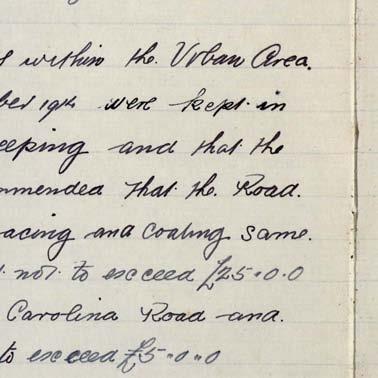 within the Urban Area.
ber 19th were kept in
eeping and that the
mmended that the Road.
acing and coating same.
not to exceed £25.0.0
Carolina Road and.
to exceed £5.0.0